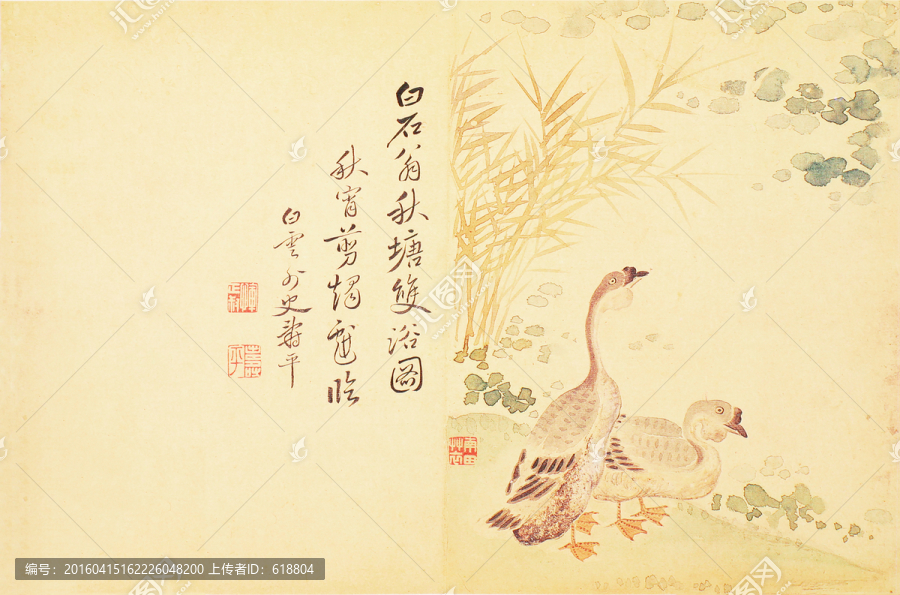 白石翁秋塘雙浴圖
秋宵剪燭戲臨
白雲外史壽平
壽平
南田艸衣
编号：20160415162226048200 上传者ID：618804